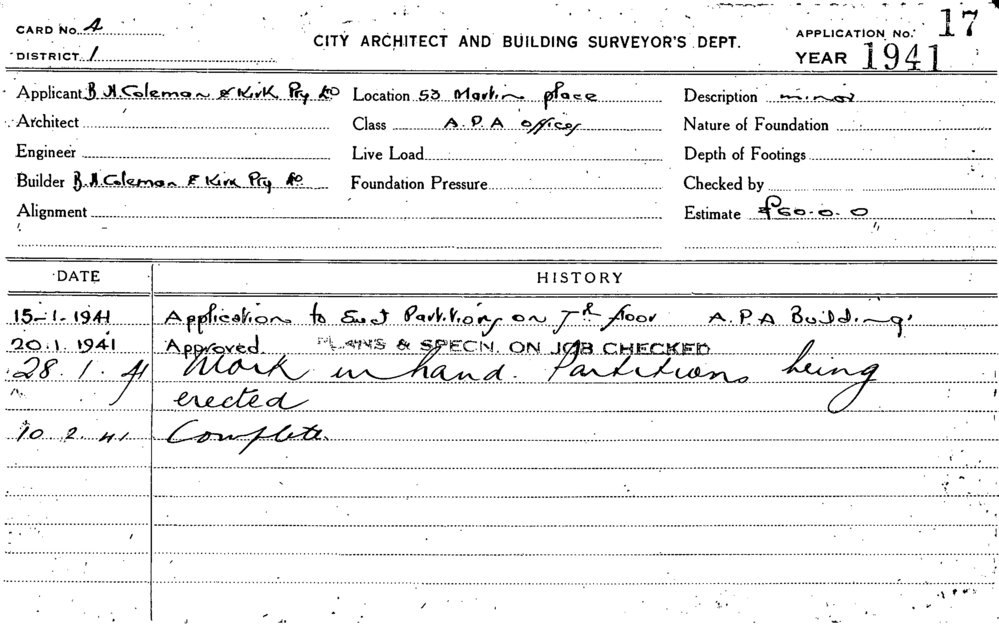 CARD No. A
DISTRICT 1
CITY ARCHITECT AND BUILDING SURVEYOR'S DEPT.
APPLICATION No. 17
YEAR 1941
Applicant B.H. Coleman & Kirk Pty Ltd
Location 53 Martin place
Description minor
Architect
Class A.P.A offices
Nature of Foundation
Engineer
Live Load
Depth of Footings
Builder B.H. Coleman & Kirk Pty
Foundation Pressure
Checked by
Alignment
Estimate £60.0.0
DATE HISTORY
15-1.1941 Application to Erect Partitions on 7th floor A.P.A Building
20.1.1941 Approved. PLANS & SPECN. ON JOB CHECKED
28.1.41 Work in hand. Partitions being
erected
10.2.41 Complete.